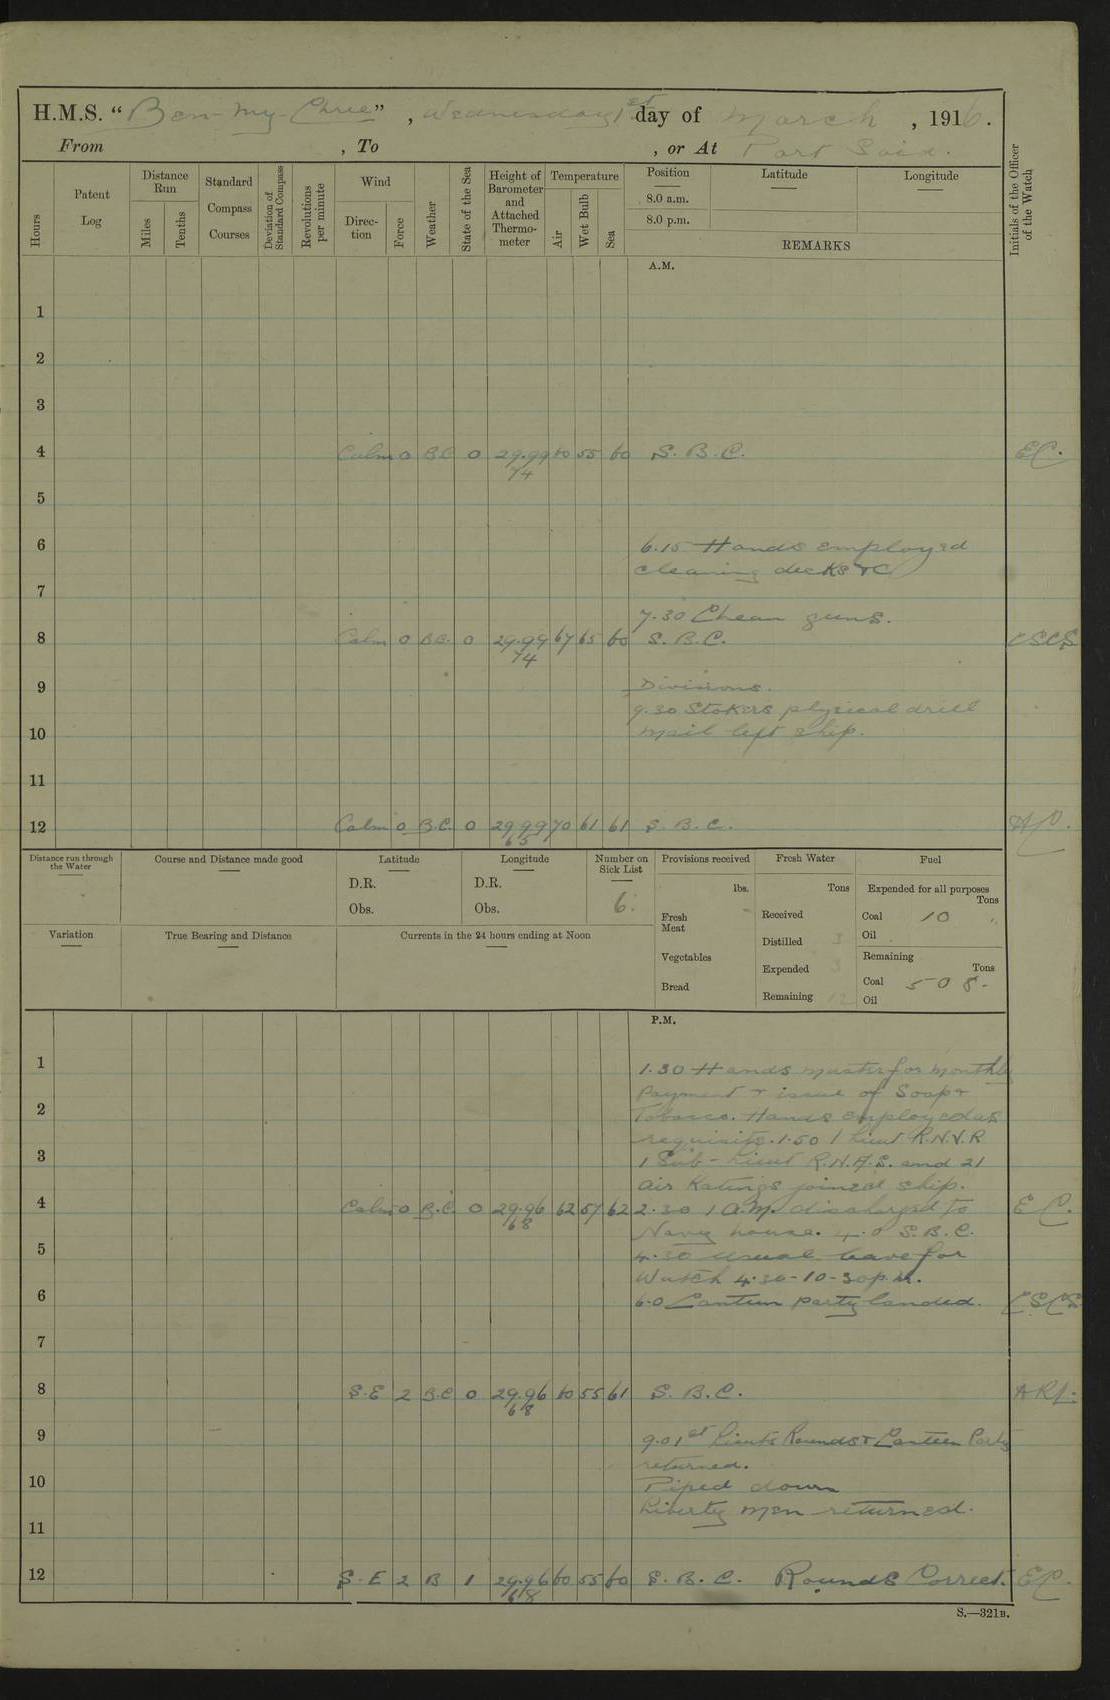 H.M.S. “ Ben-my-Chree ” , Wednesday 1st day of March , 1916 .
From , To , or At Port Said.
Hours
Patent Log
Distance Run
Miles
Tenths
Standard Compass Courses
Deviation of Standard Compass
Revolutions per minute
Wind
Direction
Force
Weather
State of the Sea
Height of Barometer and Attached Thermometer
Temperature
Air
Wet Bulb
Sea
Position
8.0 a.m.
8.0 p.m.
Latitude
Longitude
REMARKS
Initials of the Officer of the Watch
A.M.
1
2
3
4 Calm 0 B.C. 0 29.99 60 55 60 S. B. C. EC.
74
5
6 6.15 Hands employed
cleaning decks &C
7
7.30 Clean guns.
8 Calm 0 B.C. 0 29.99 67 65 60 S. B. C. CSCS
74
9 Divisions.
9.30 Stokers physical drill
10 mail left ship.
11
12 Calm 0 B.C. 0 29.99 70 61 61 S. B. C.
65
Distance run through the Water
Course and Distance made good
Latitude
D.R.
Obs.
Longitude
D.R.
Obs.
Number on Sick List
6.
Provisions received
lbs.
Fresh Meat
Vegetables
Bread
Fresh Water
Tons
Received
Distilled 3
Expended 3
Remaining 12
Fuel
Expended for all purposes
Tons
Coal 10
Oil
Remaining
Tons
Coal 508.
Oil
Variation
True Bearing and Distance
Currents in the 24 hours ending at Noon
P.M.
1 1.30 Hands muster for monthly
payment & issue of Soap &
2 Tobacco. Hands employed as
requisite. 1.50 1 Lieut R.N.V.R
3 1 Sub-Lieut R.N.A.S. and 21
air Ratings joined ship.
4 Calm 0 B.C. 0 29.96 62 57 62 2.30 1 A.M. discharged to EC.
68 Navy house. 4.0 S.B.C.
5 4.30 usual leave for
Watch 4.30-10-30 p.m.
6 6.0 Canteen party landed. CSCS
7
8 S.E 2 B.C 0 29.96 60 55 61 S. B. C.
68
9 9.0 1st Lieuts Rounds & Canteen Party
returned.
10 Piped down
Liberty men returned.
11
12 S.E 2 B 1 29.96 60 55 60 S. B. C. Rounds Correct. EC.
68
S.—321B.